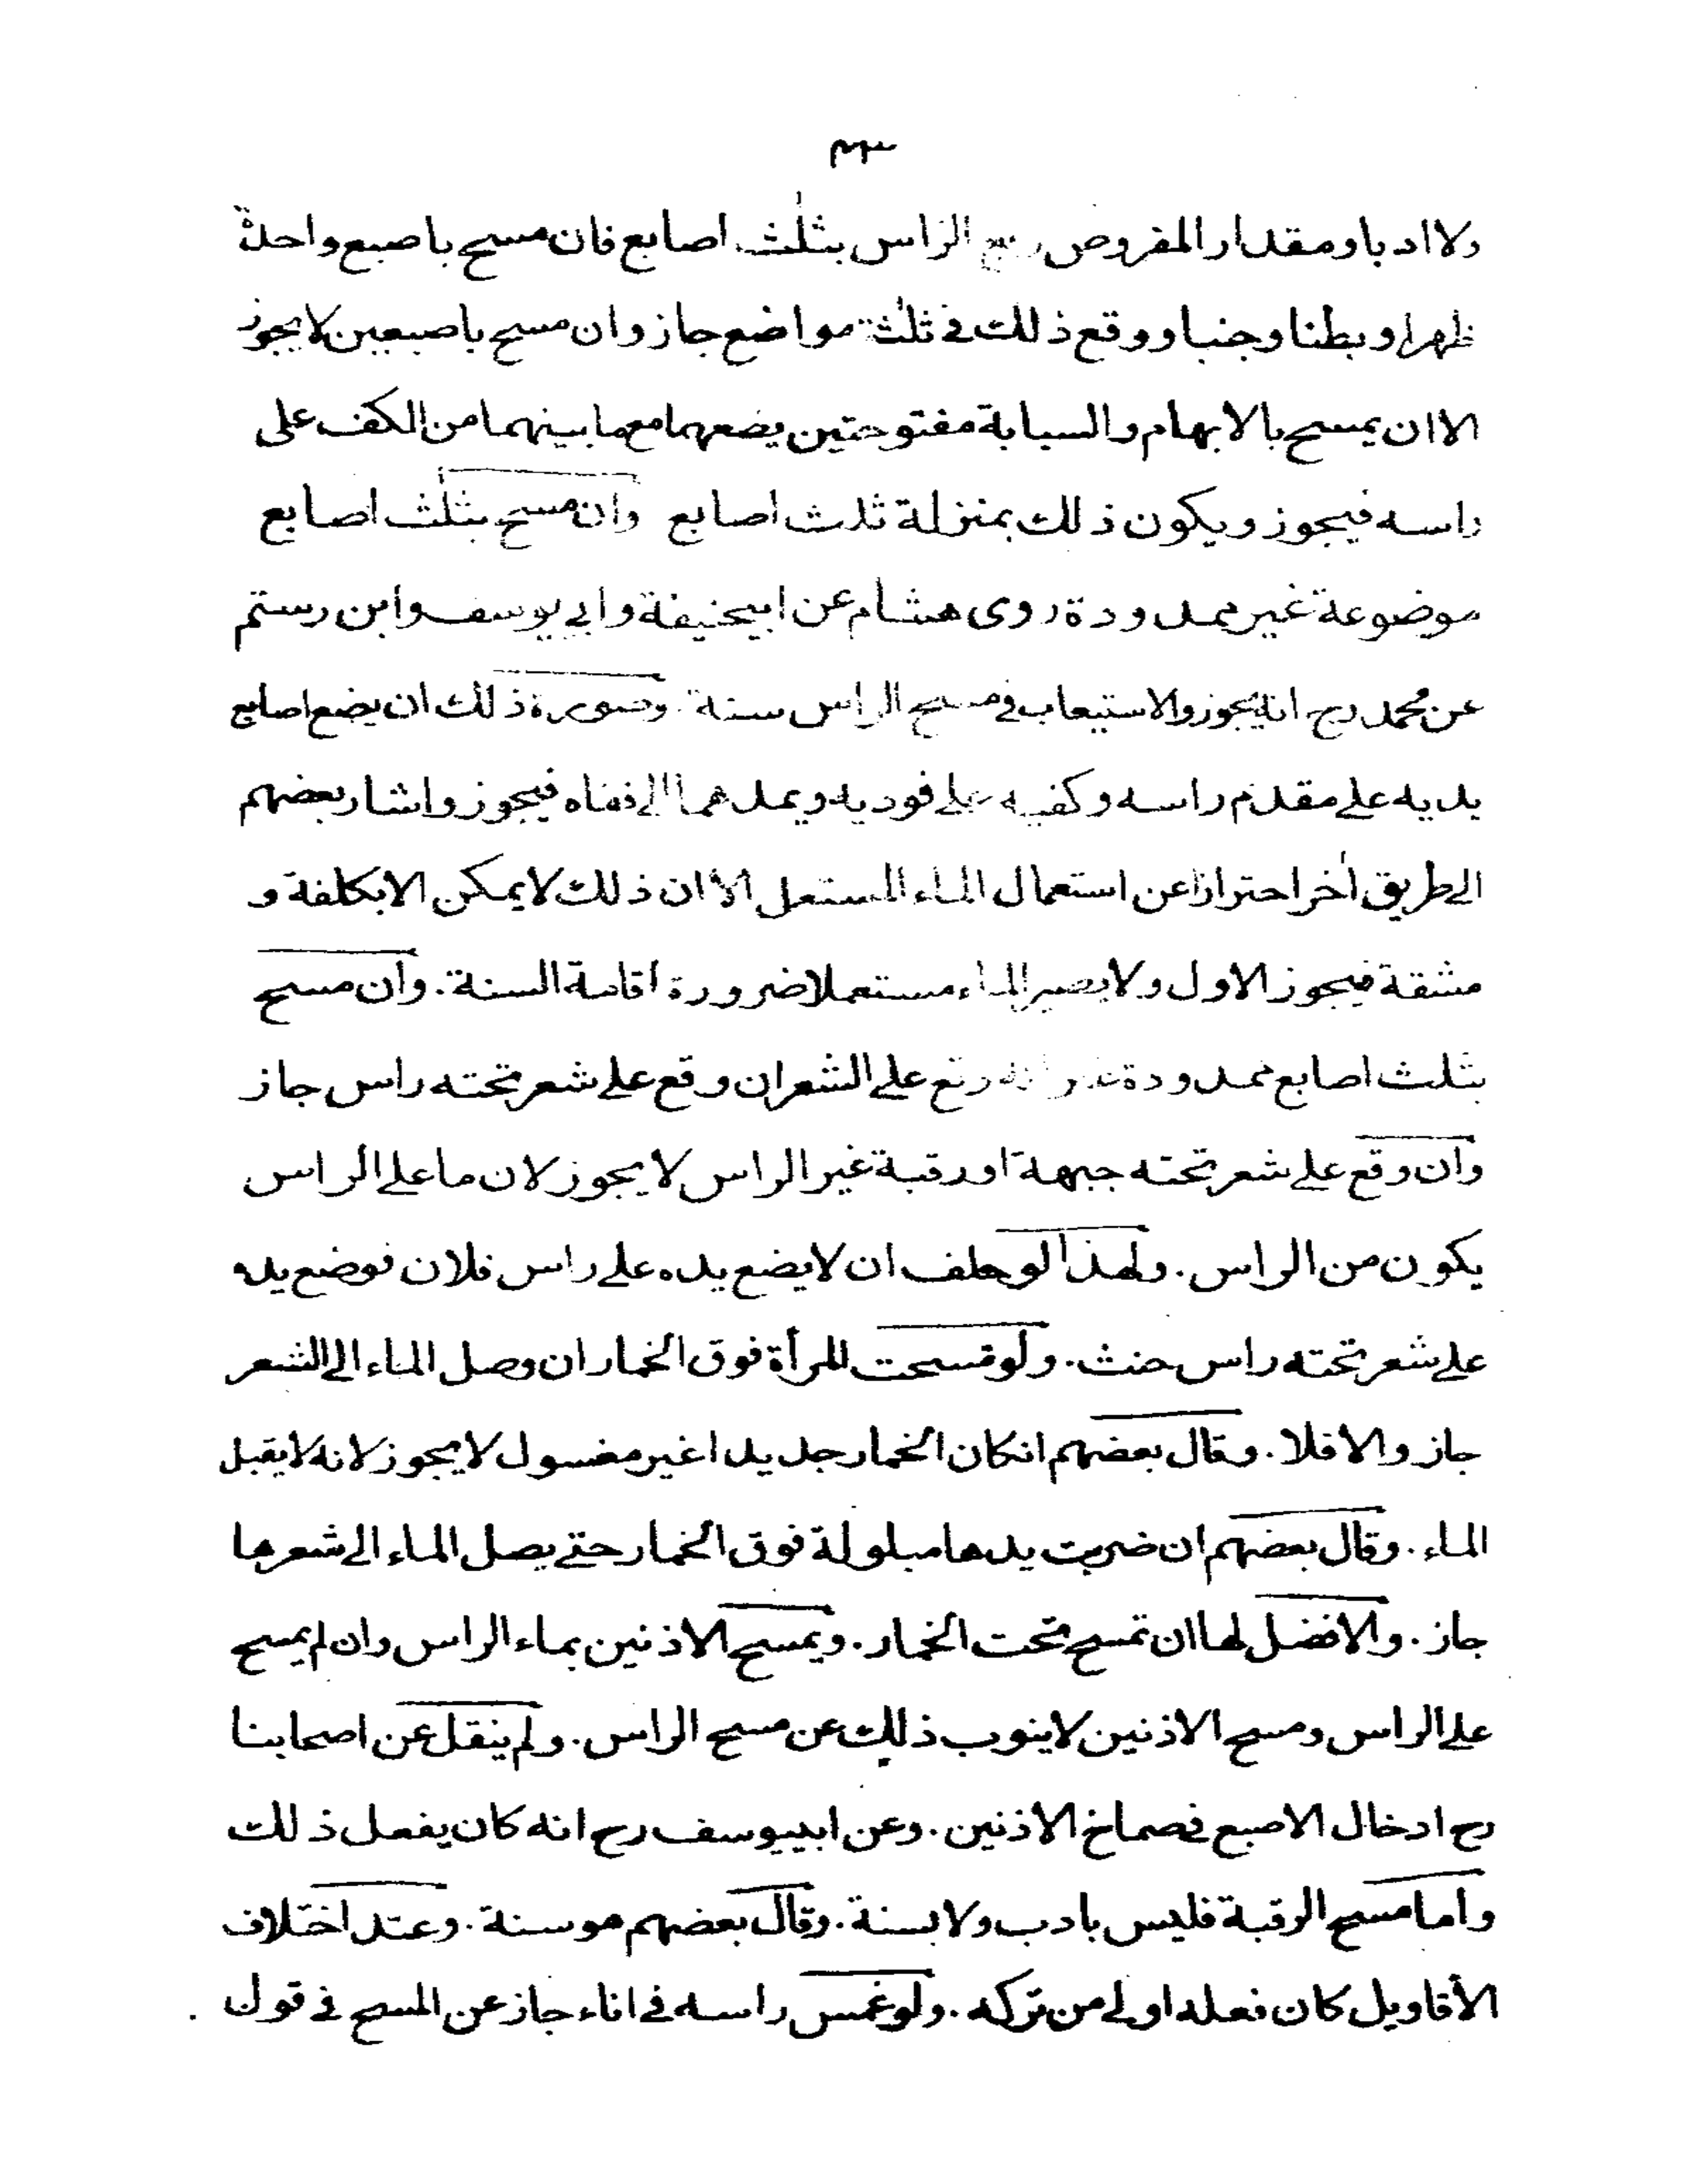 ولا ادبا ومقدار المفروض ربع الراس بثلٰث اصابع فان مسح باصبع واحدة
ظهرا وبطنا وجنبا ووقع ذلك فى ثلٰثة مواضع جاز وان مسح باصبعين لا يجوز
الا ان يمسح بالابهام والسبابة مفتوحتين يضعهما مع ما بينهما من الكف على
راسه فيجوز ويكون ذلك بمنزلة ثلث اصابع وان مسح بثلٰث اصابع
موضوعة غير ممدودة روى هشام عن ابيحنيفة وابي يوسف وابن رستم
عن محمد رح انه يجوز والاستيعاب فى مسح الراس سنة وصورة ذلك ان يضع اصابع
يديه على مقدم راسه وكفيه على فوديه ويمدهما الى قفاه فيجوز واشار بعضهم
الى طريق اٰخر احترازا عن استعمال الماء المستعمل الا ان ذلك لا يمكن الا بكلفة و
مشقة فيجوز الاول ولا يصير الماء مستعملا ضرورة اقامة السنة. وان مسح
بثلث اصابع ممدودة وقع على الشعر ان وقع على شعر تحته راس جاز
وان وقع على شعر تحته جبهة او رقبة غير الراس لا يجوز لان ما على الراس
يكون من الراس. ولهذا لو حلف ان لا يضع يده على راس فلان فوضع يده
على شعر تحته راس حنث. ولو مسحت المرأة فوق الخمار ان وصل الماء الى الشعر
جاز والا فلا. وقال بعضهم انكان الخمار جديدا غير مغسول لا يجوز لانه لا يقبل
الماء. وقال بعضهم ان ضربت يدها مبلولة فوق الخمار حتى يصل الماء الى شعرها
جاز. والافضل لها ان تمسح تحت الخمار. ويمسح الاذنين بماء الراس وان لم يمسح
على الراس ومسح الاذنين لا ينوب ذلك عن مسح الراس. ولم ينقل عن اصحابنا
رح ادخال الاصبع فى صماخ الاذنين. وعن ابييوسف رح انه كان يفعل ذلك
واما مسح الرقبة فليس بادب ولا بسنة. وقال بعضهم هو سنة. وعند اختلاف
الأقاويل كان فعله اولى من تركه. ولو غمس راسه فى اناء جاز عن المسح فى قول